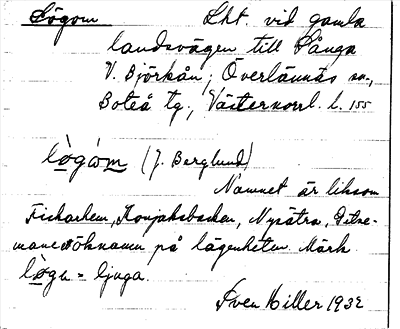 Lögom Lht. vid gamla
landsvägen till Sånga
V. Björkån, Överlännäs sn.,
Boteå tg., Västernorrl. l. 155
lògòm (J. Berglund)
Namnet är liksom
Fiskarhem, Konjaksbacken, Nysätra,
öknamn på lägenheter. Märk
lòga = ljuga.
Sven Hiller 1932